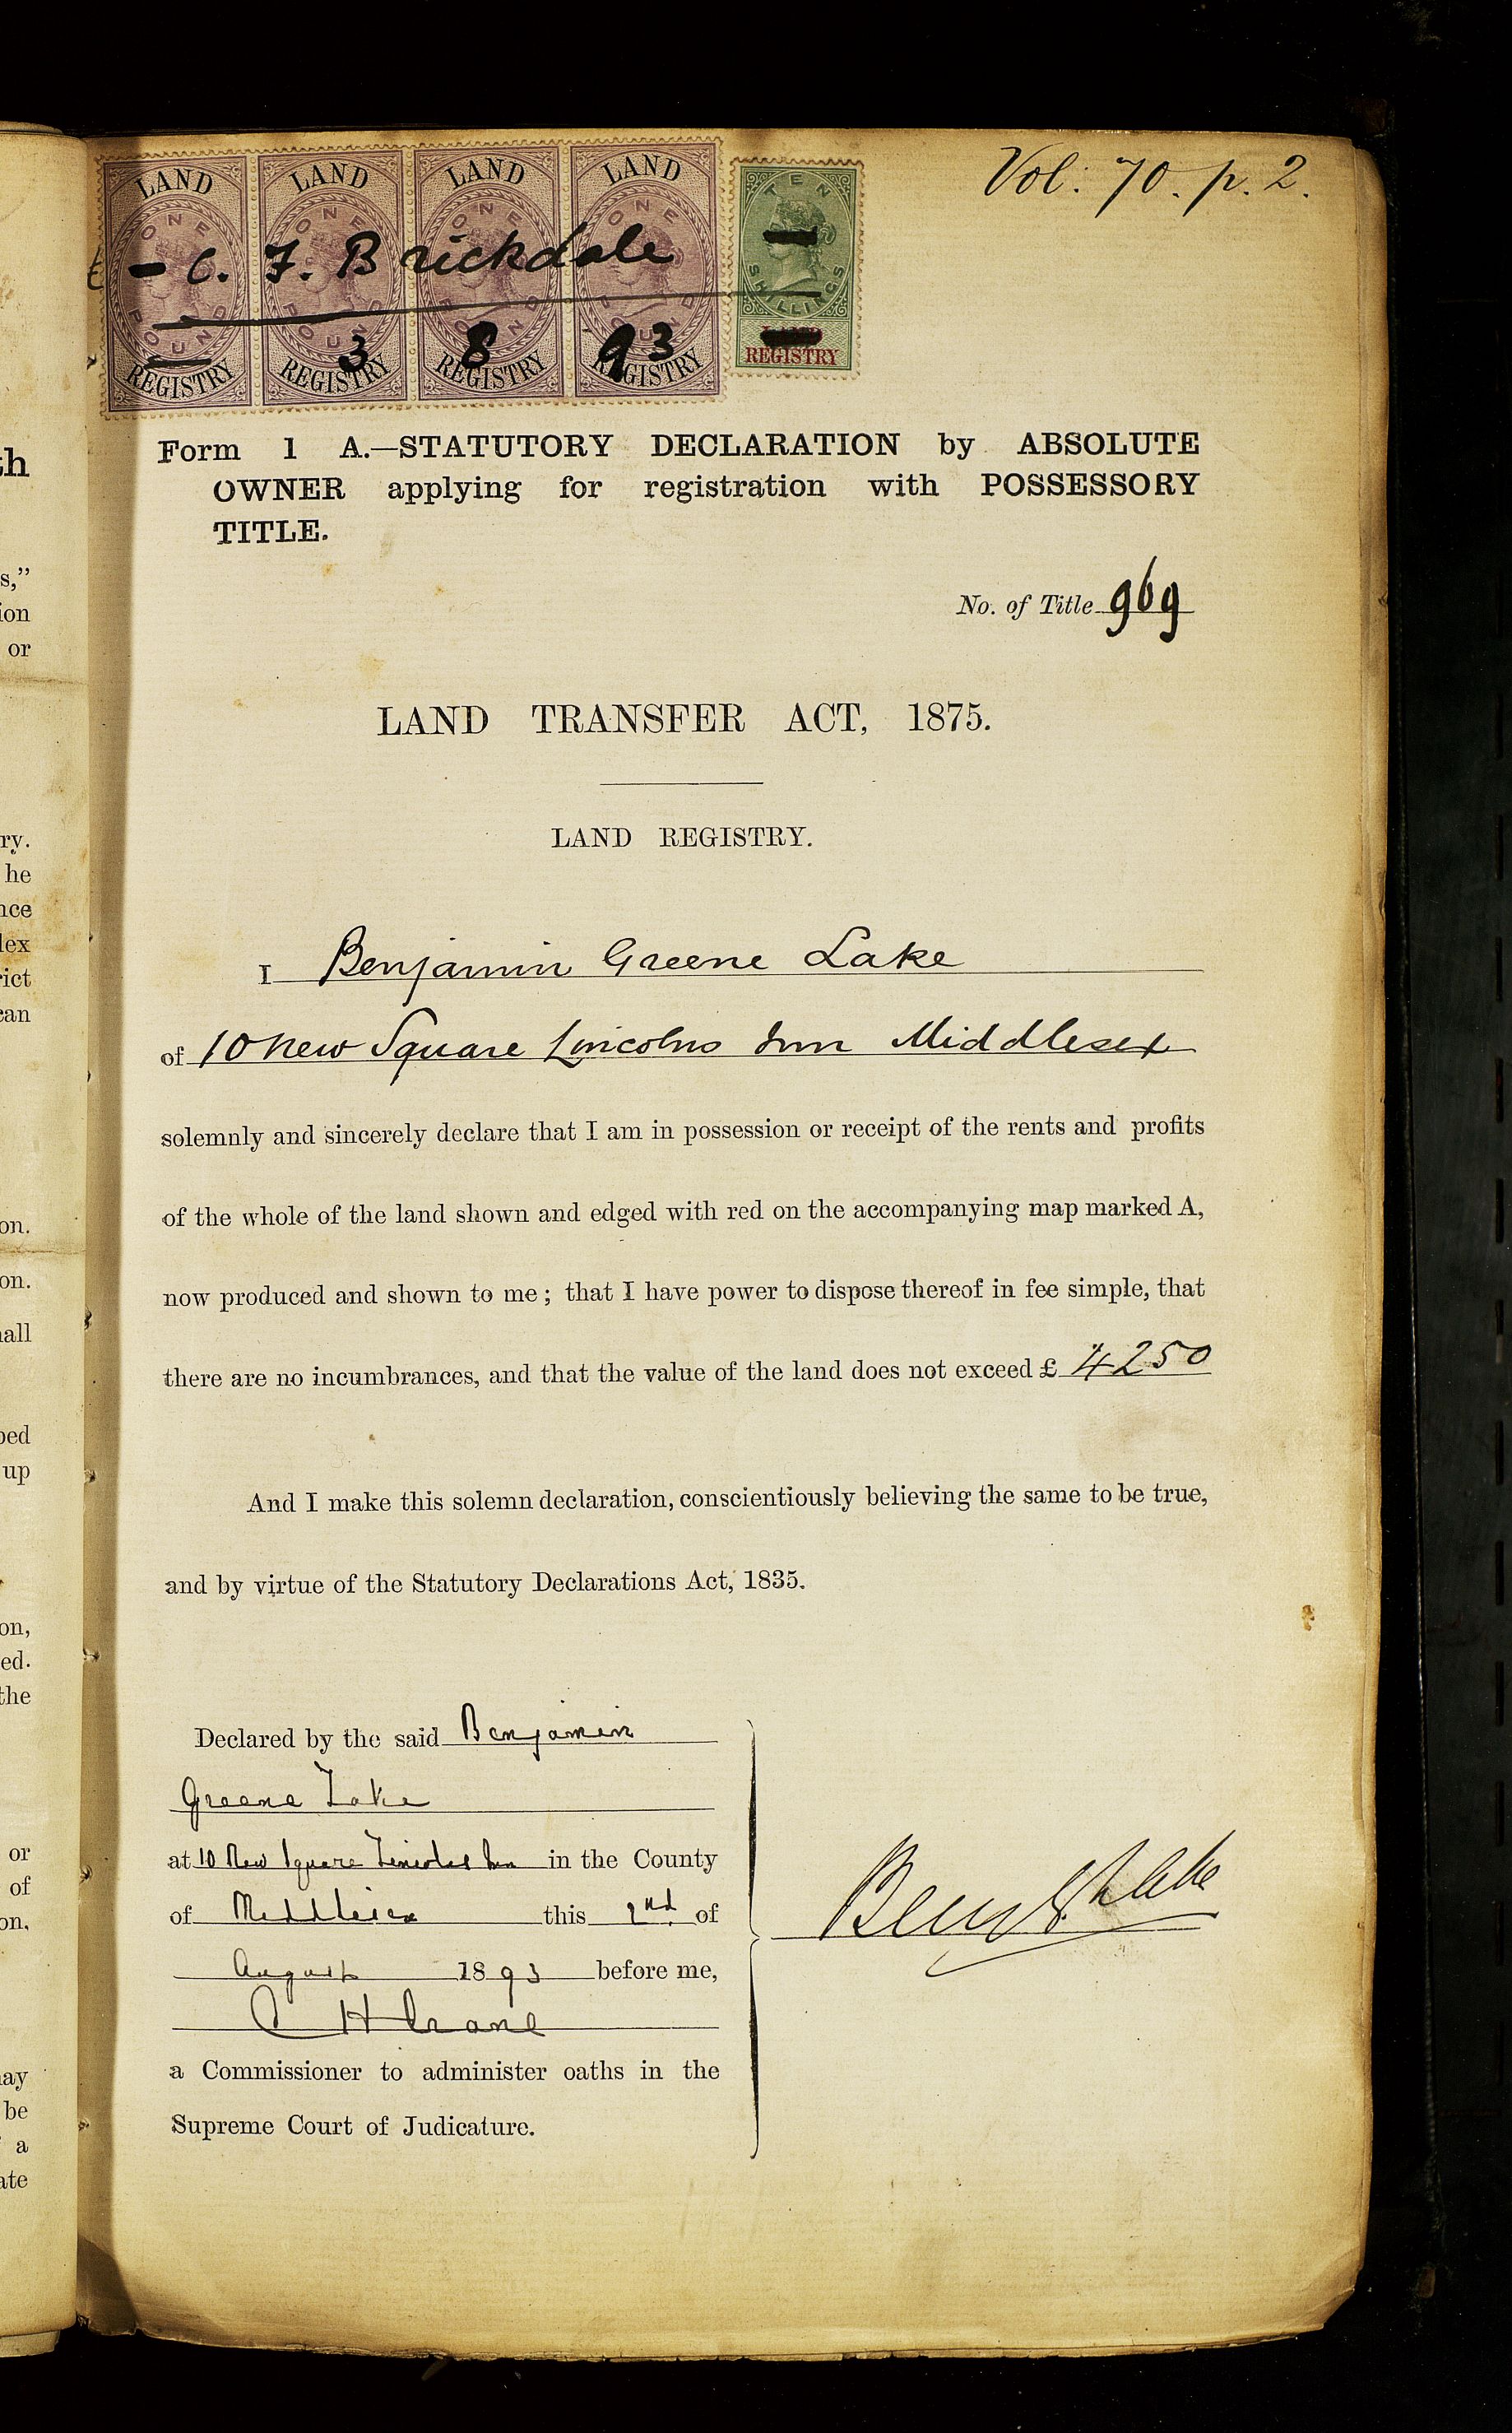 Vol: 70. p. 2.
LAND LAND LAND LAND
ONE ONE ONE ONE TEN
- C. F. Brickdale
POUND POUND POUND POUND SHILLINGS
3 8 93
REGISTRY REGISTRY REGISTRY REGISTRY REGISTRY
Form 1 A.—STATUTORY DECLARATION by ABSOLUTE
OWNER applying for registration with POSSESSORY
TITLE.
No. of Title 969
LAND TRANSFER ACT, 1875.
LAND REGISTRY.
I Benjamin Greene Lake
of 10 New Square Lincolns Inn Middlesex
solemnly and sincerely declare that I am in possession or receipt of the rents and profits
of the whole of the land shown and edged with red on the accompanying map marked A,
now produced and shown to me; that I have power to dispose thereof in fee simple, that
there are no incumbrances, and that the value of the land does not exceed £ 4250
And I make this solemn declaration, conscientiously believing the same to be true,
and by virtue of the Statutory Declarations Act, 1835.
Declared by the said Benjamin
Greene Lake
at 10 New Square Lincolns Inn in the County
of Middlesex this 2nd of
August 1893 before me,
C H Crane
a Commissioner to administer oaths in the
Supreme Court of Judicature.
Benj G Lake
h
s,"
ion
or
ry.
he
nce
lex
rict
can
on.
on.
all
bed
up
on,
ed.
the
or
of
on,
ay
be
a
ate